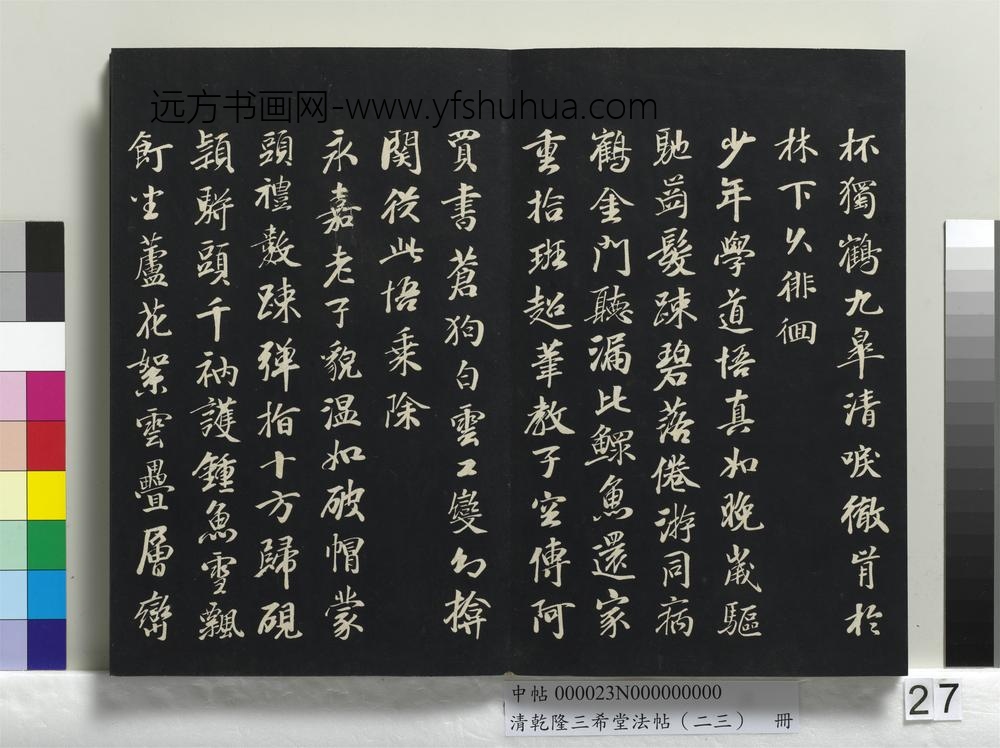 远方书画网-www.yfshuhua.com
杯獨鶴九皋清唳徹肯於
林下久徘徊
少年學道悟真如晚歲驅
馳齒髮踈碧落倦游同病
鶴金門聽漏比鰥魚還家
重拾班超筆教子空傳阿
買書蒼狗白雲工變幻揜
関從此悟乘除
永嘉老子貌温如破帽蒙
頭禮數踈弹指十方歸硯
頭千衲護鍾魚雪飄
坐蘆花絮雲疊層巒
中帖 000023N000000000
清乾隆三希堂法帖（二三） 冊
27